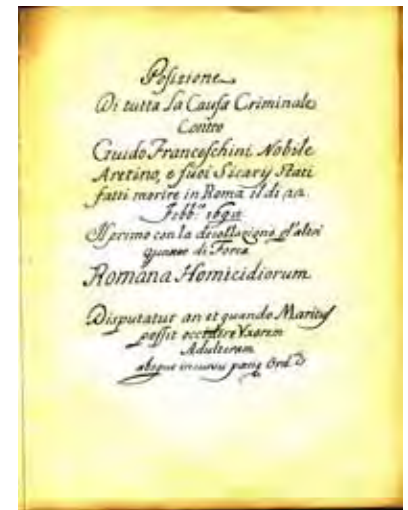 Posizione
Di tutta la Causa Criminale
Contro
Guido Franceschini Nobile
Aretino, e suoi Sicarij stati
fatti morire in Roma il di 22.
Febb.º
Il primo con la decollazione gl'altri
quattro di Forca
Romana Homicidiorum
Disputatur an et quando Maritus
possit occidere Uxorem
Adulteram
absque incursu pœnæ Ord.